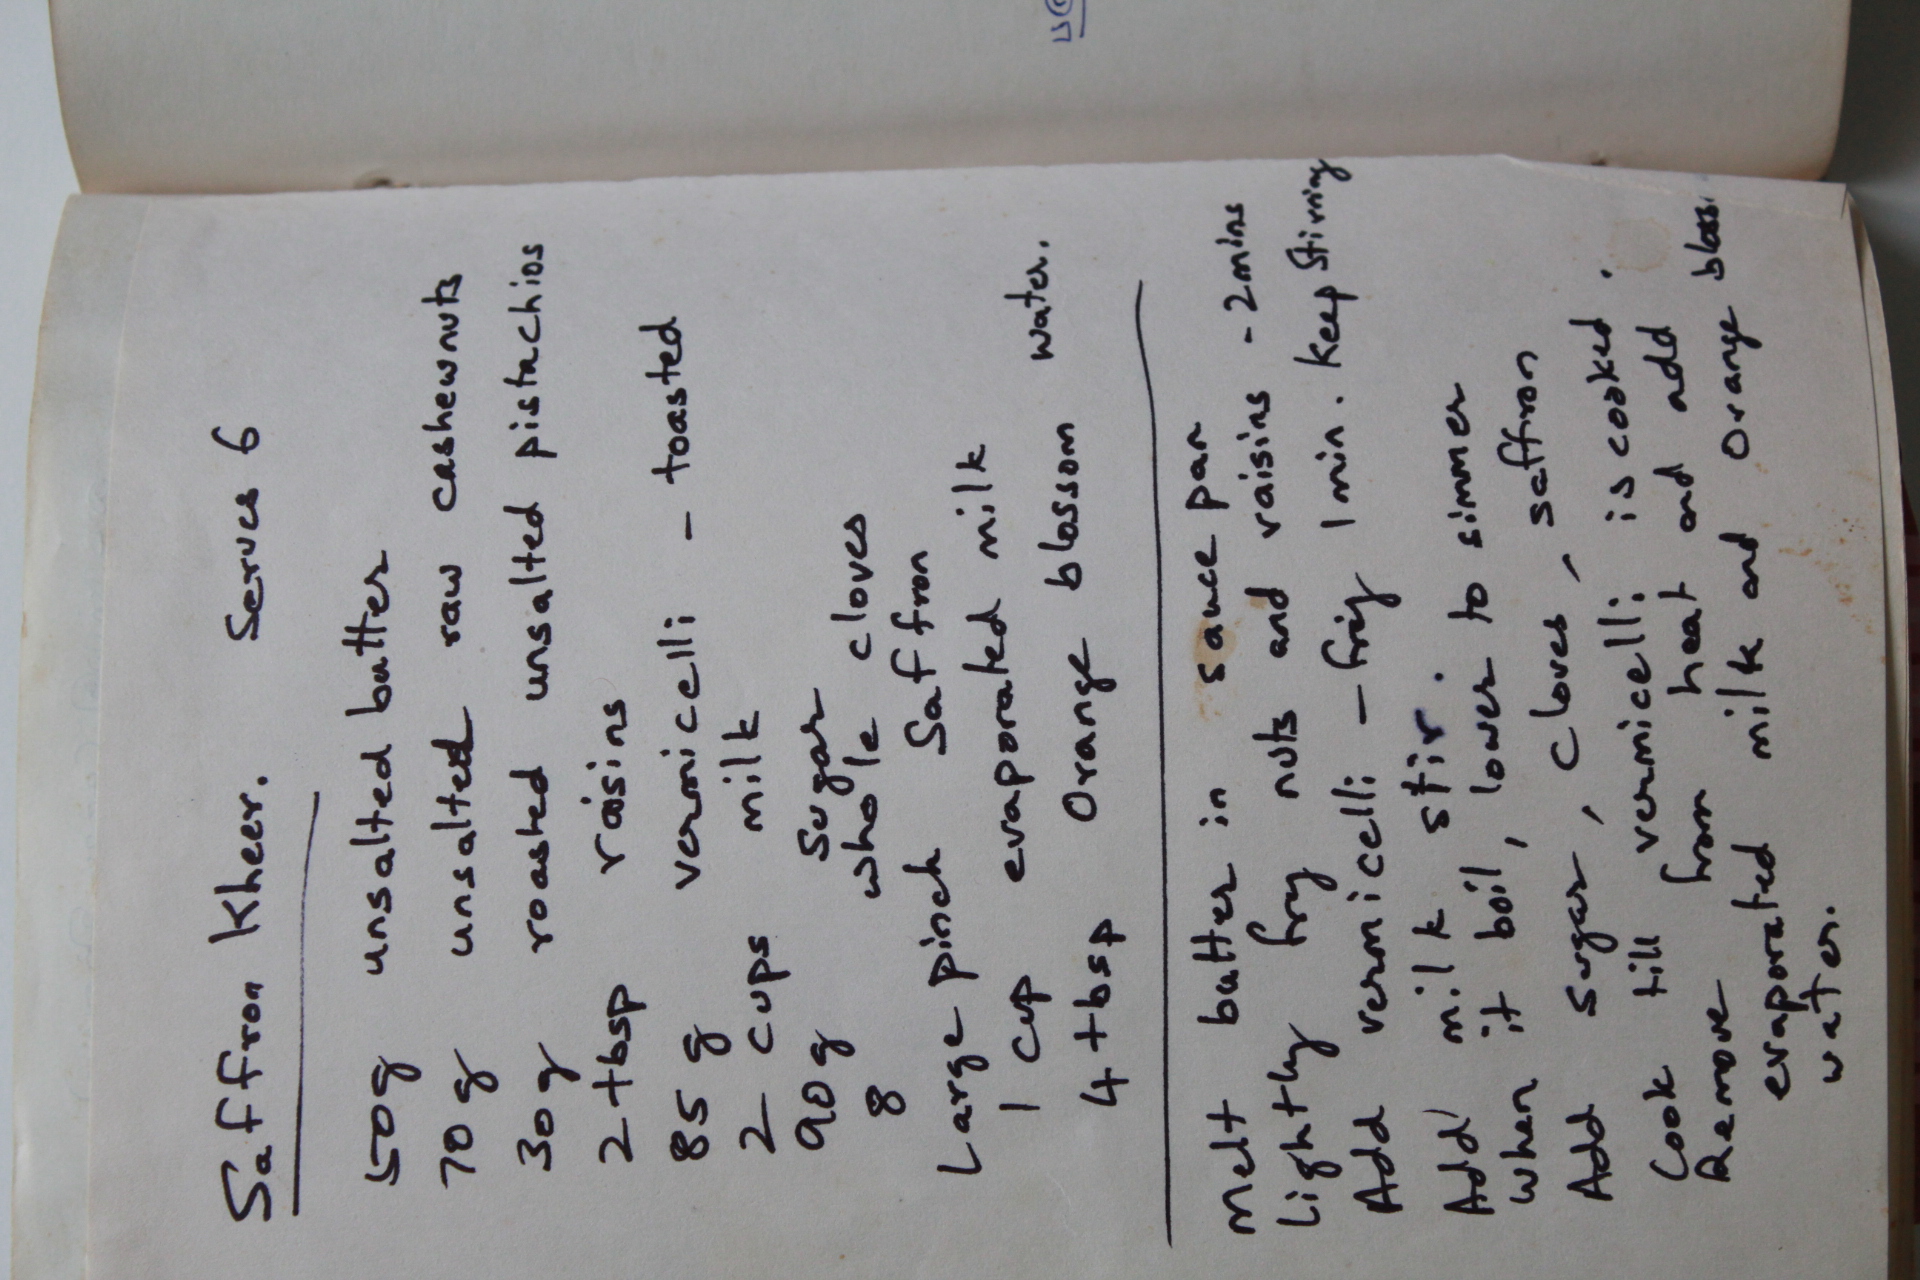 Saffron Kheer. Serves 6
50g unsalted butter
70g unsalted raw cashewnuts
30g roasted unsalted pistachios
2 tbsp raisins
85g vermicelli - toasted
2 cups milk
90g sugar
8 whole cloves
Large pinch Saffron
1 cup evaporated milk
4 tbsp Orange blossom water.
Melt butter in sauce pan
Lightly fry nuts and raisins - 2mins
Add vermicelli - fry 1 min. Keep Stirring
Add milk stir.
When it boil, lower to simmer
Add sugar, cloves, saffron
Cook till vermicelli is cooked.
Remove from heat and add
evaporated milk and orange
water.